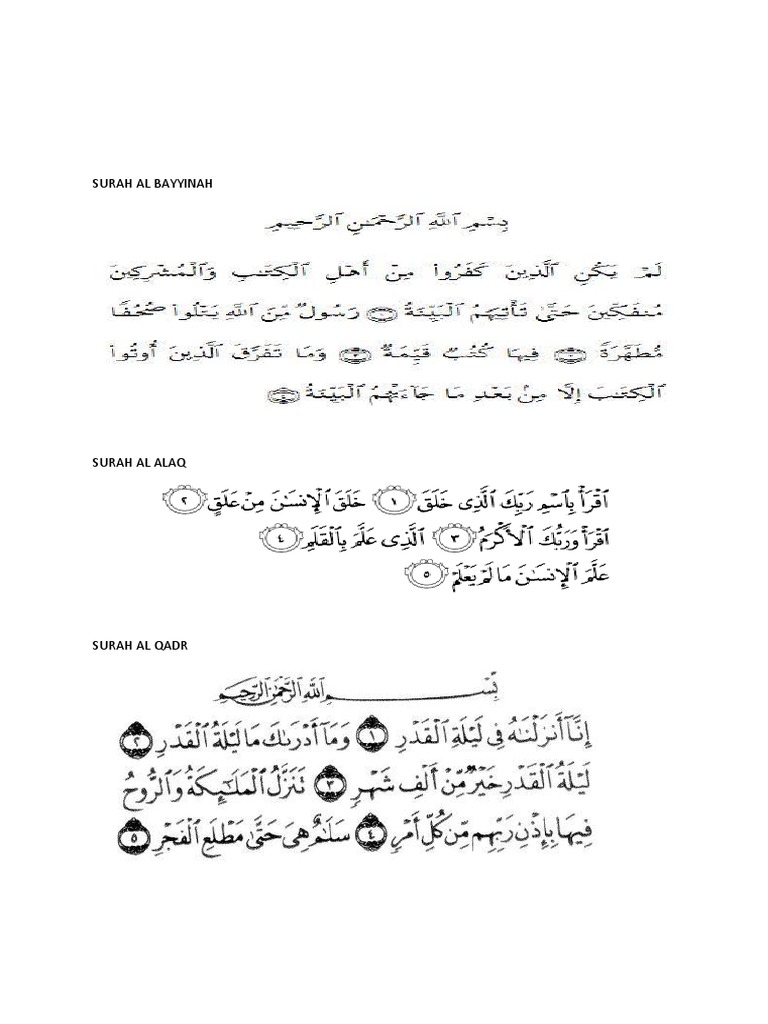 SURAH AL BAYYINAH
بِسْمِ ٱللَّهِ ٱلرَّحْمَـٰنِ ٱلرَّحِيمِ
لَمْ يَكُنِ ٱلَّذِينَ كَفَرُوا۟ مِنْ أَهْلِ ٱلْكِتَـٰبِ وَٱلْمُشْرِكِينَ
مُنفَكِّينَ حَتَّىٰ تَأْتِيَهُمُ ٱلْبَيِّنَةُ ١ رَسُولٌ مِّنَ ٱللَّهِ يَتْلُوا۟ صُحُفًا
مُّطَهَّرَةً ٢ فِيهَا كُتُبٌ قَيِّمَةٌ ٣ وَمَا تَفَرَّقَ ٱلَّذِينَ أُوتُوا۟
ٱلْكِتَـٰبَ إِلَّا مِنۢ بَعْدِ مَا جَآءَتْهُمُ ٱلْبَيِّنَةُ ٤
SURAH AL ALAQ
ٱقْرَأْ بِٱسْمِ رَبِّكَ ٱلَّذِى خَلَقَ ١ خَلَقَ ٱلْإِنسَـٰنَ مِنْ عَلَقٍ ٢
ٱقْرَأْ وَرَبُّكَ ٱلْأَكْرَمُ ٣ ٱلَّذِى عَلَّمَ بِٱلْقَلَمِ ٤
عَلَّمَ ٱلْإِنسَـٰنَ مَا لَمْ يَعْلَمْ ٥
SURAH AL QADR
بِسْمِ ٱللَّهِ ٱلرَّحْمَـٰنِ ٱلرَّحِيمِ
إِنَّآ أَنزَلْنَـٰهُ فِى لَيْلَةِ ٱلْقَدْرِ ١ وَمَآ أَدْرَىٰكَ مَا لَيْلَةُ ٱلْقَدْرِ ٢
لَيْلَةُ ٱلْقَدْرِ خَيْرٌ مِّنْ أَلْفِ شَهْرٍ ٣ تَنَزَّلُ ٱلْمَلَـٰٓئِكَةُ وَٱلرُّوحُ
فِيهَا بِإِذْنِ رَبِّهِم مِّن كُلِّ أَمْرٍ ٤ سَلَـٰمٌ هِىَ حَتَّىٰ مَطْلَعِ ٱلْفَجْرِ ٥